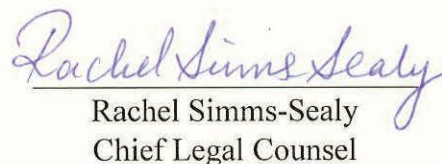 Rachel Simms Sealy
Rachel Simms-Sealy
Chief Legal Counsel